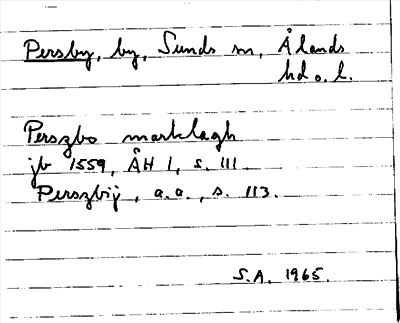 Persby, by, Sunds sn, Ålands
hd o. l.
Perszbo marklagh
jb 1559, ÅH 1, s. 111.
Perszbÿ, a.a., s. 113.
S.A. 1965.